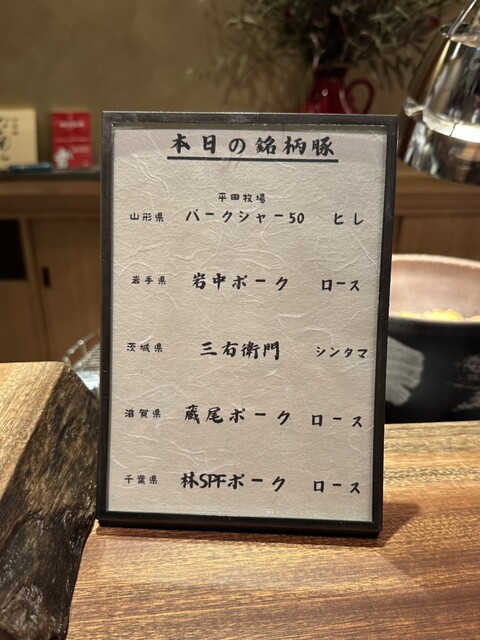 本日の銘柄豚
平田牧場
山形県 バークシャー50 ヒレ
岩手県 岩中ポーク ロース
茨城県 三右衛門 シンタマ
滋賀県 蔵尾ポーク ロース
千葉県 林SPFポーク ロース